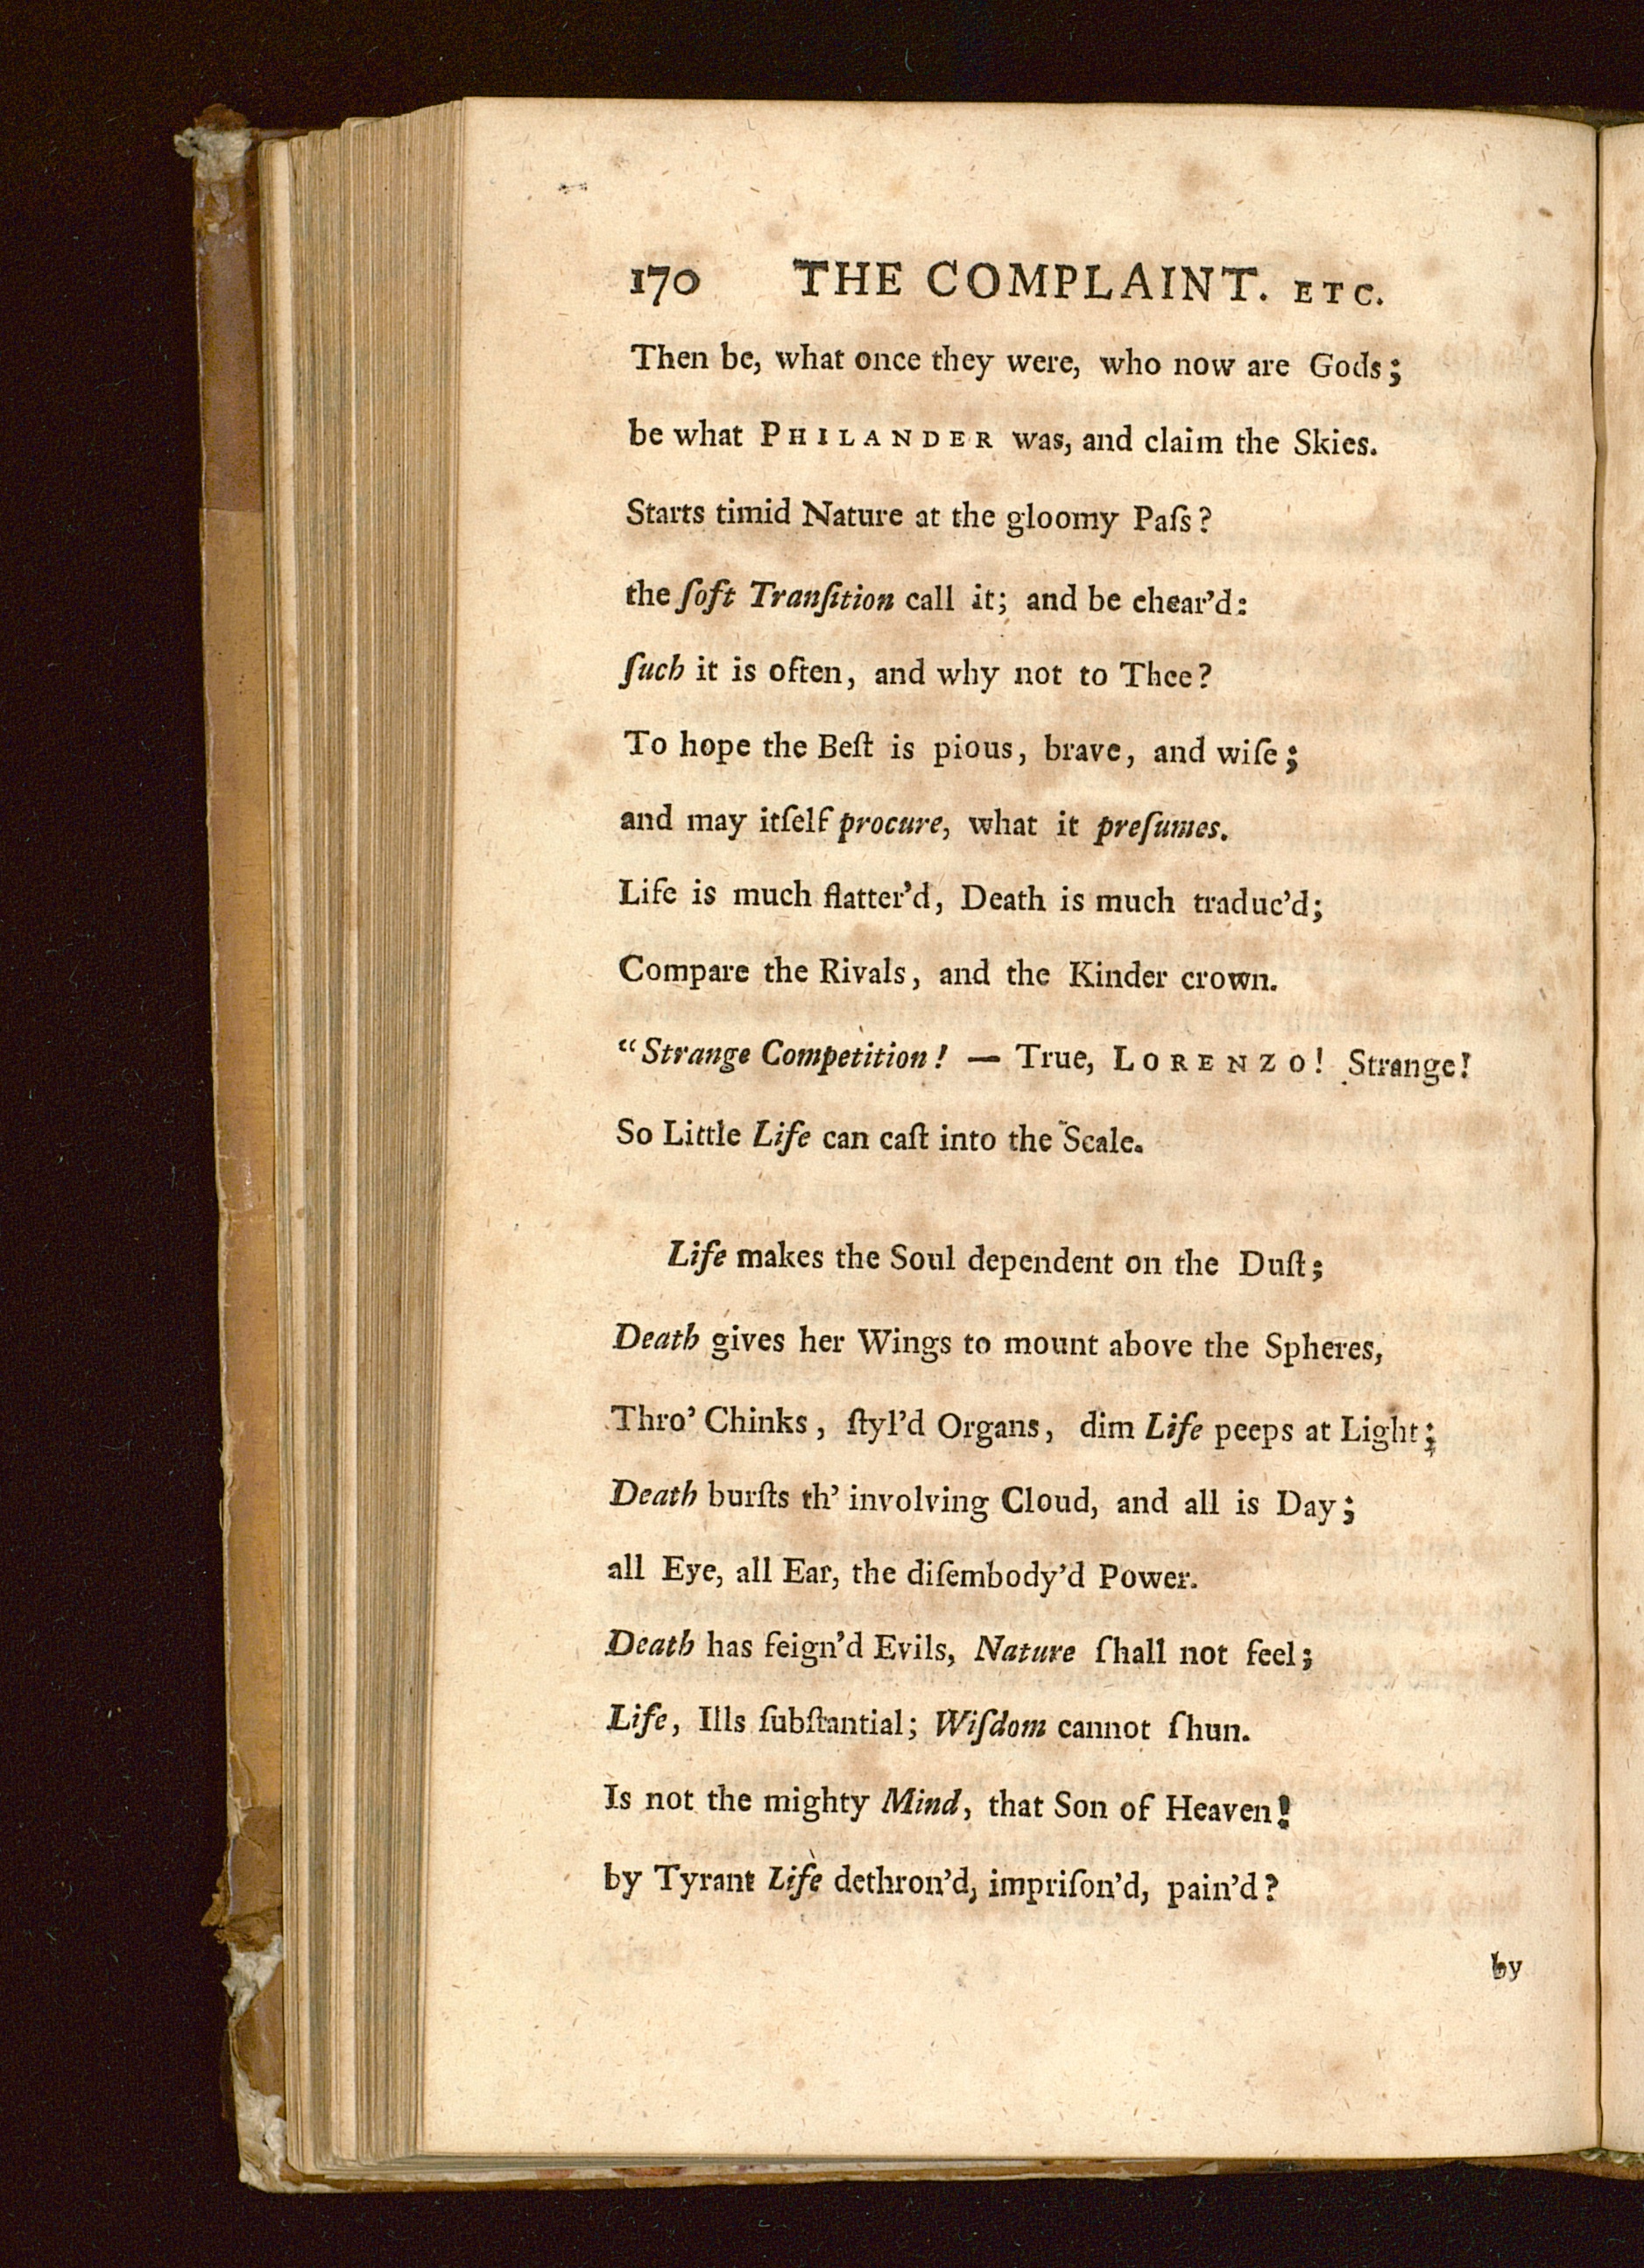 170 THE COMPLAINT. ETC.
Then be, what once they were, who now are Gods;
be what PHILANDER was, and claim the Skies.
Starts timid Nature at the gloomy Paſs?
the ſoft Tranſition call it; and be chear'd:
ſuch it is often, and why not to Thee?
To hope the Beſt is pious, brave, and wiſe;
and may itſelf procure, what it preſumes.
Life is much flatter'd, Death is much traduc'd;
Compare the Rivals, and the Kinder crown.
“Strange Competition! — True, LORENZO! Strange!
So Little Life can caſt into the Scale.
Life makes the Soul dependent on the Duſt;
Death gives her Wings to mount above the Spheres,
Thro' Chinks, ſtyl'd Organs, dim Life peeps at Light;
Death burſts th' involving Cloud, and all is Day;
all Eye, all Ear, the diſembody'd Power.
Death has feign'd Evils, Nature ſhall not feel;
Life, Ills ſubſtantial; Wiſdom cannot ſhun.
Is not the mighty Mind, that Son of Heaven!
by Tyrant Life dethron'd, impriſon'd, pain'd?
by